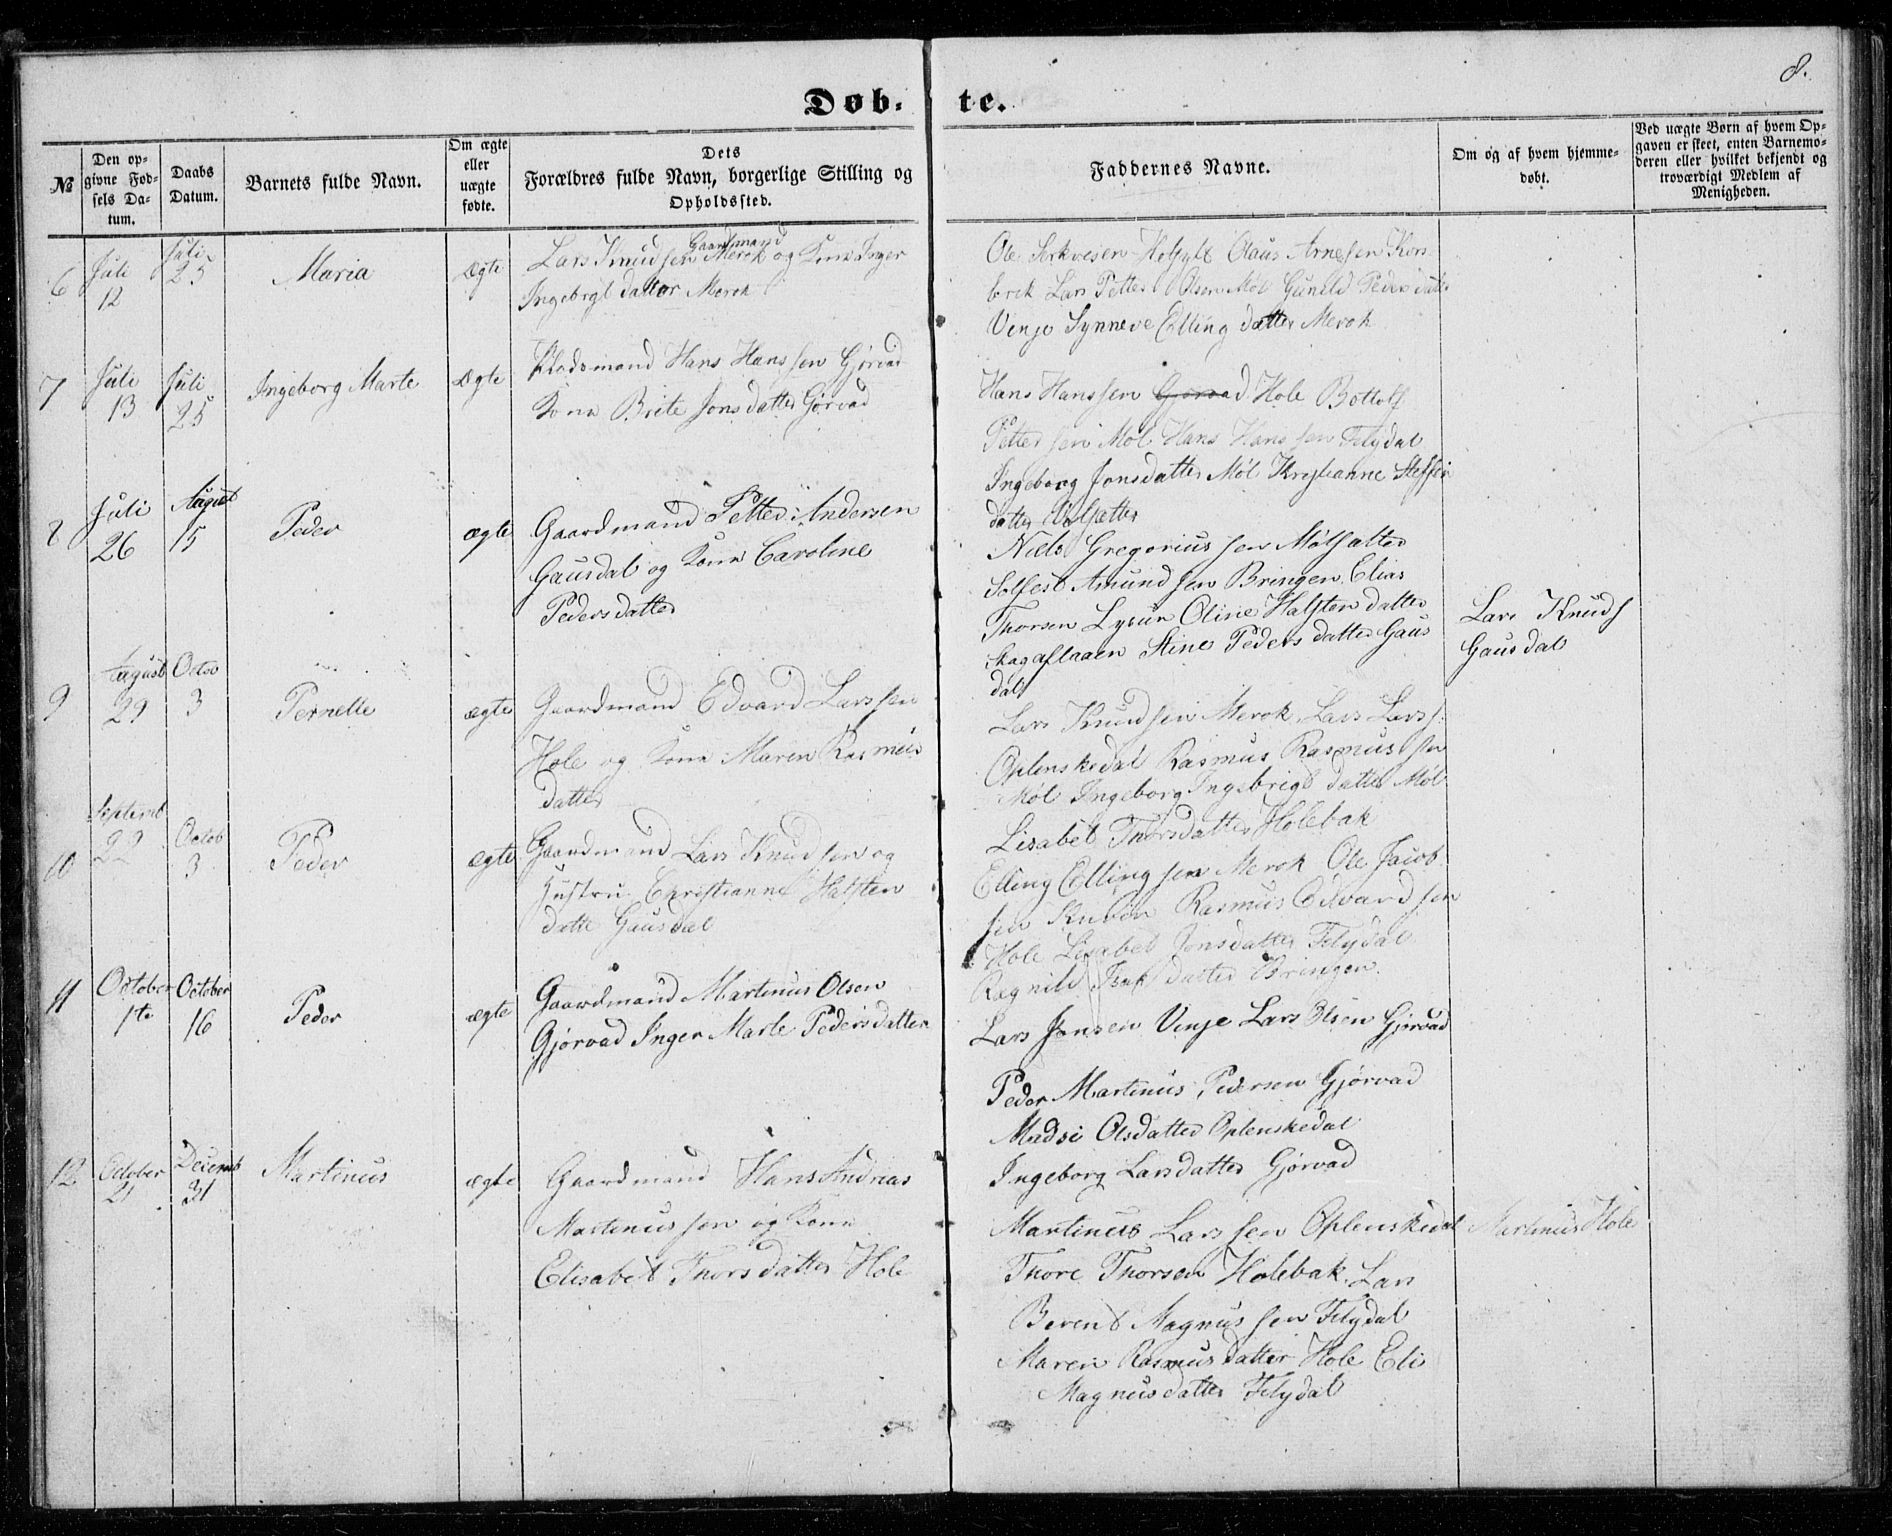 8.
Døb- te.
№
Den op-
givne Fød-
sels Da-
tum.
Daabs
Datum.
Barnets fulde Navn.
Om ægte
eller
uægte
fødte.
Dets
Forældres fulde Navn, borgerlige Stilling og
Opholdssted.
Faddernes Navne.
Om og af hvem hjemme-
døbt.
Ved uægte Børn af hvem Op-
gaven er skeet, enten Barnemo-
deren eller hvilket bekjendt og
troværdigt Medlem af
Menigheden.
6
Juli
12
Juli
25
Maria
Ægte
Gaardmand
Lars Knudsen Merok og Kona Inger
Ingebrgt datter Merok
Ole Olaus Arnesen Kors
brek Lars Petter Olsen Møl Gunild Peders datter
Venje Synneve Elling datter Merok
7
Juli
13
Juli
25
Ingeborg Marte
Ægte
Pladsmand Hans Hanssen Gjørvad
Kona Brite Jonsdatter Gjørvad
Hans Hanssen Gjørvad Hole Bottolf
Pettersen Møl Hans Hanssen Flydal
Ingeborg Jonsdatter Møl Kristianne Steffen
datter
8
Juli
26
August
15
Peder
ægte
Gaardmand Petter Andersen
Gausdal og Kona Caroline
Pedersdatter
Niels Gregoriussen
Solfest Amundsen Bringen Elias
Thorsen Oline Halsten datter
Skagaflaaen Stine Peders datter Gaus
dal
Lars Knuds
Gausdal
9
August
29
Octob
3
Pernelle
ægte
Gaardmand Edvard Larssen
Hole og Kona Maren Rasmus
datter
Lars Knudsen Merok Lars Larss.
Oplenskedal Rasmus Rasmussen
Møl Ingeborg Ingebrigt datter Møl
Lisabet Thorsdatter Holebak
10
Septemb
22
Octob
3
Peder
ægte
Gaardmand Lars Knudsen og
Hustru Christianne Halsten
datte Gausdal
Elling Ellingsen Merok Ole Jacob
sen Rasmus Edvardsen
Hole Lisabet Jonsdatter Flydal
Ragnild datter Bringen.
11
October
1te
October
16
Peder
ægte
Gaardmand Martinus Olsen
Gjørvad Inger Marte Pedersdatter
Lars Jonsen Venje Lars Olsen Gjørvad
Peder Martinus Pedersen Gjørvad
Madsi Olsdatter Oplenskedal
Ingeborg Larsdatter Gjørvad
12
October
21
Decemb
31
Martinus
ægte
Gaardmand Hans Andrias
Martinussen og Kona
Elisabet Thorsdatter Hole
Martinus Larssen Oplenskedal
Thore Thorsen Holebak Lars
Berent Magnussen Flydal
Maren Rasmusdatter Hole Eli
Magnusdatter Flydal
Martinus Hole